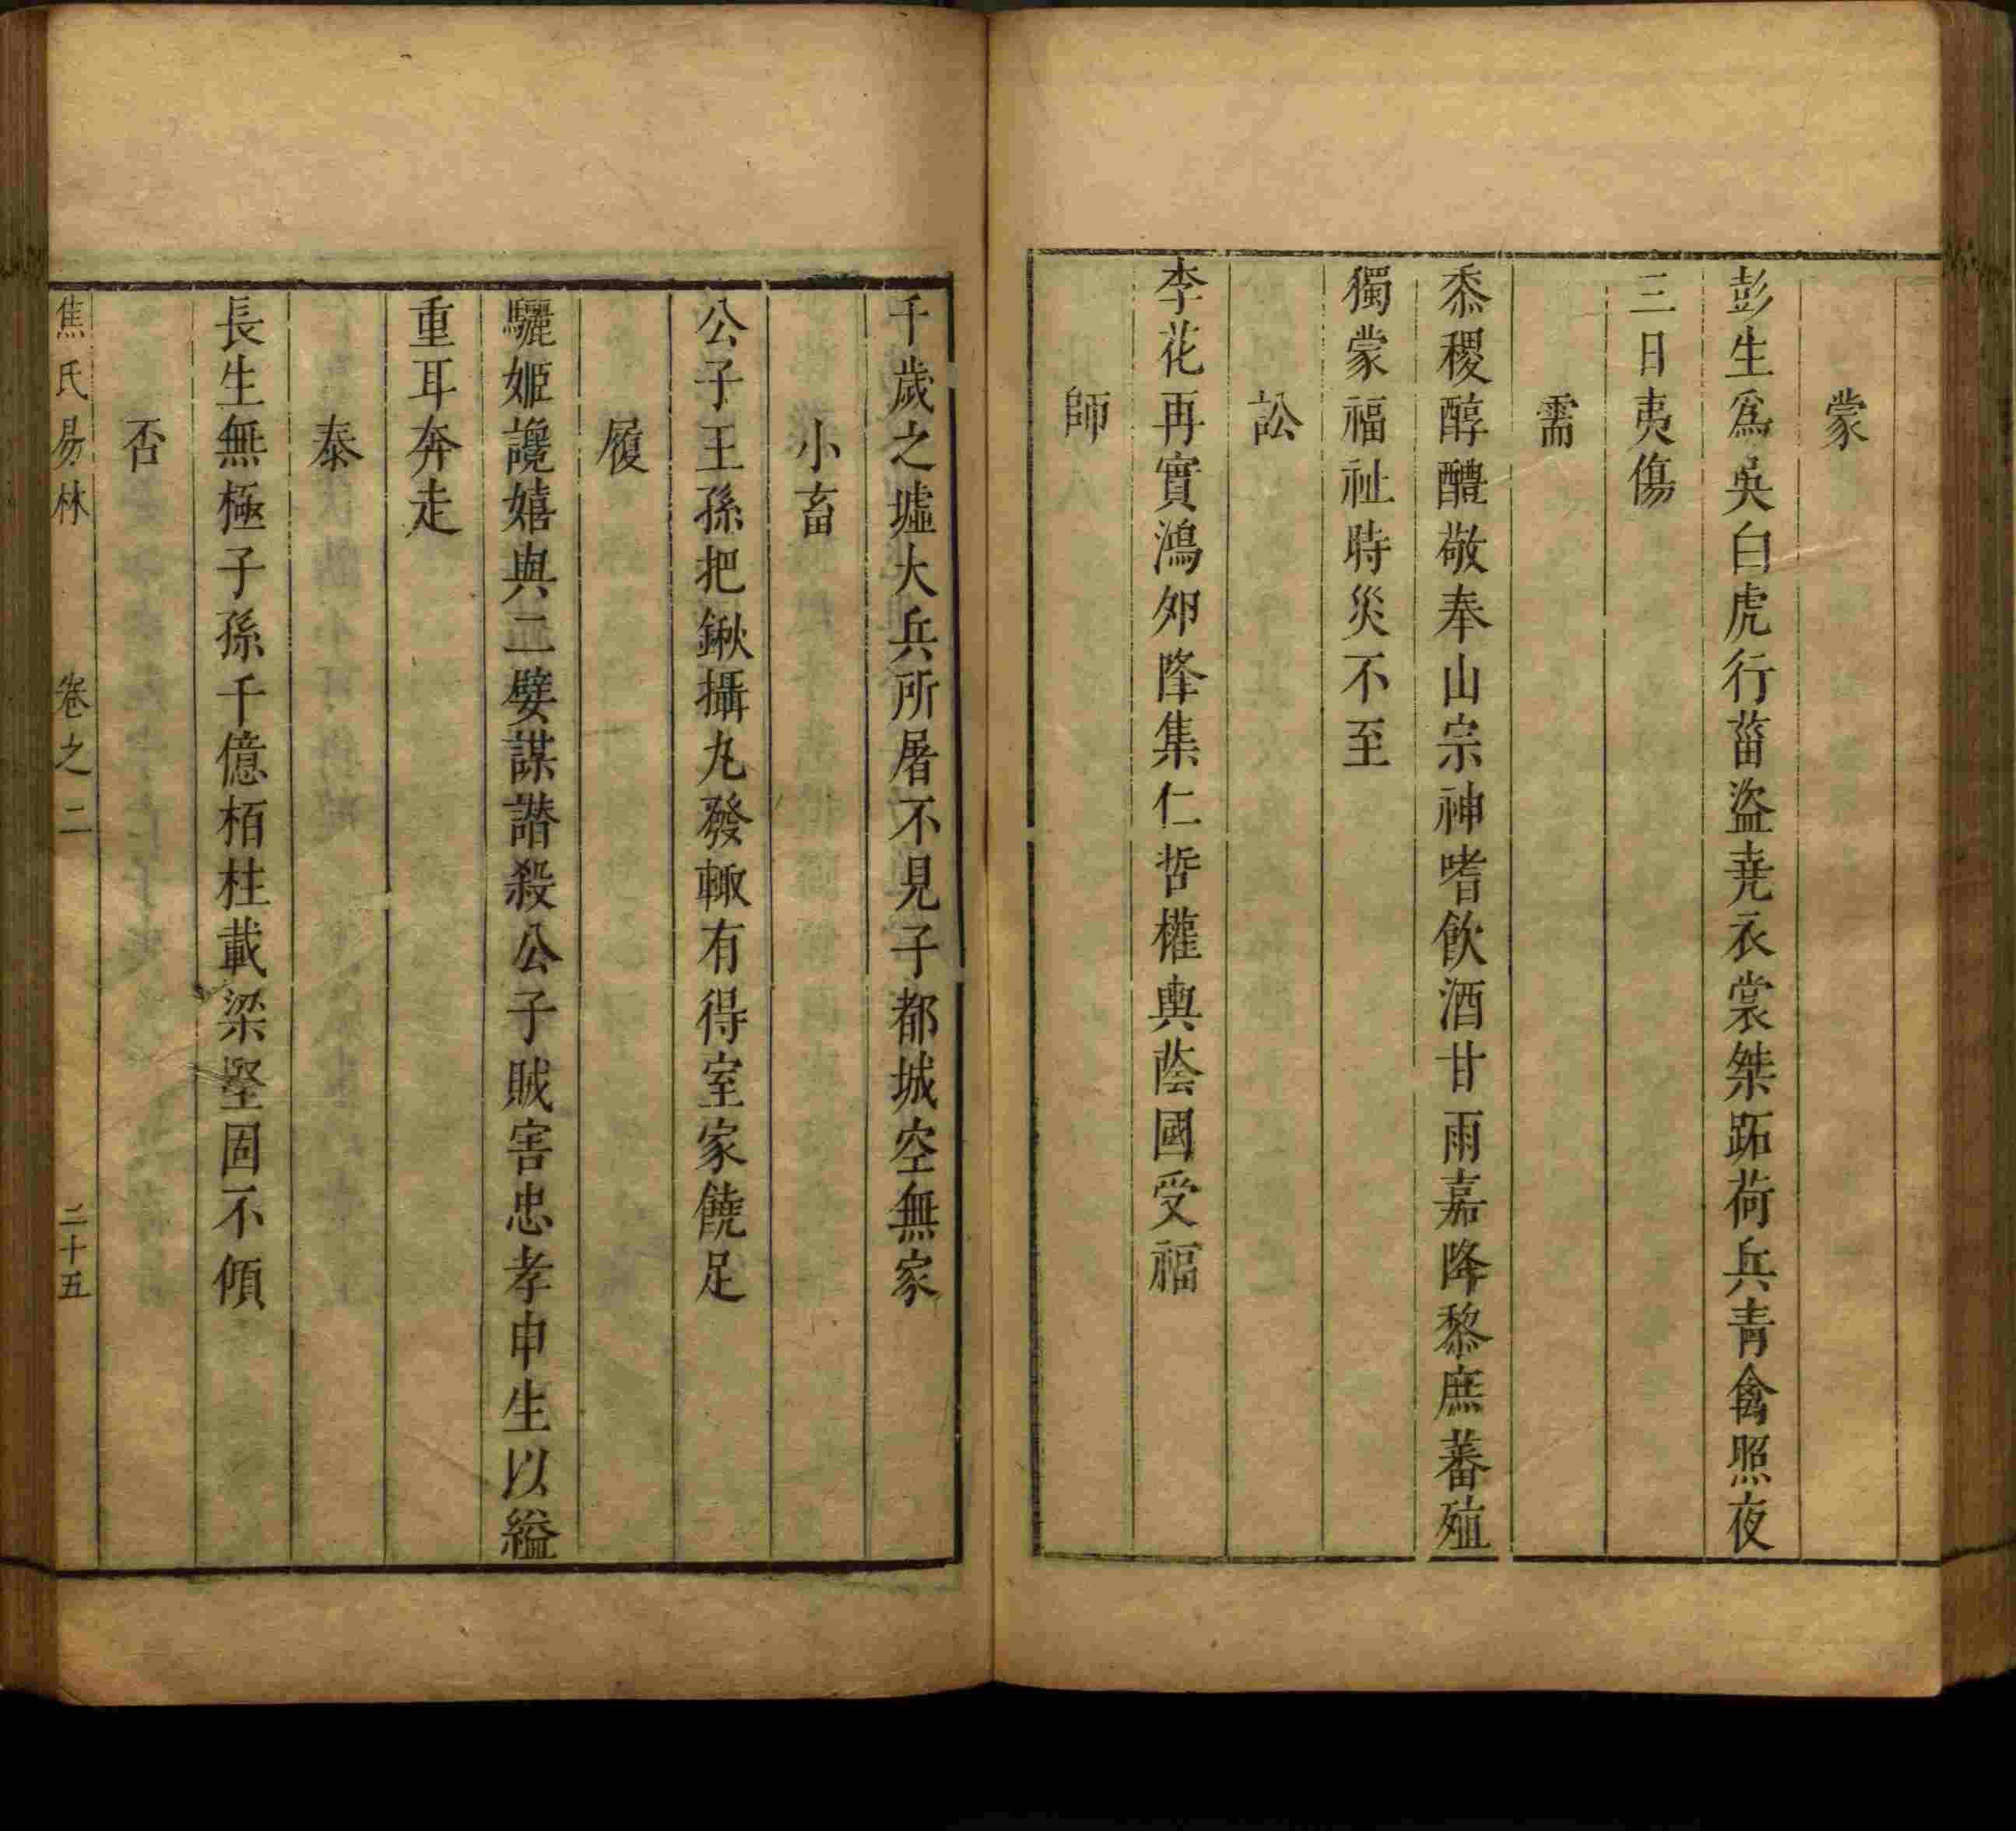 蒙
彭生爲吳白虎行菑盜堯衣裳桀跖荷兵青禽照夜
三日夷傷
需
黍稷醇醲敬奉山宗神嗜飲酒甘雨嘉降黎庶蕃殖
獨蒙福祉時災不至
訟
李花再實鴻卵降集仁哲權輿蔭國受福
師
千歲之墟大兵所屠不見子都城空無家
小畜
公子王孫把鍬攝丸發輙有得室家饒足
履
驪姬讒嬉與二嬖謀譖殺公子賊害忠孝申生以縊
重耳奔走
泰
長生無極子孫千億栢柱載梁堅固不傾
否
焦氏易林 卷之二 二十五